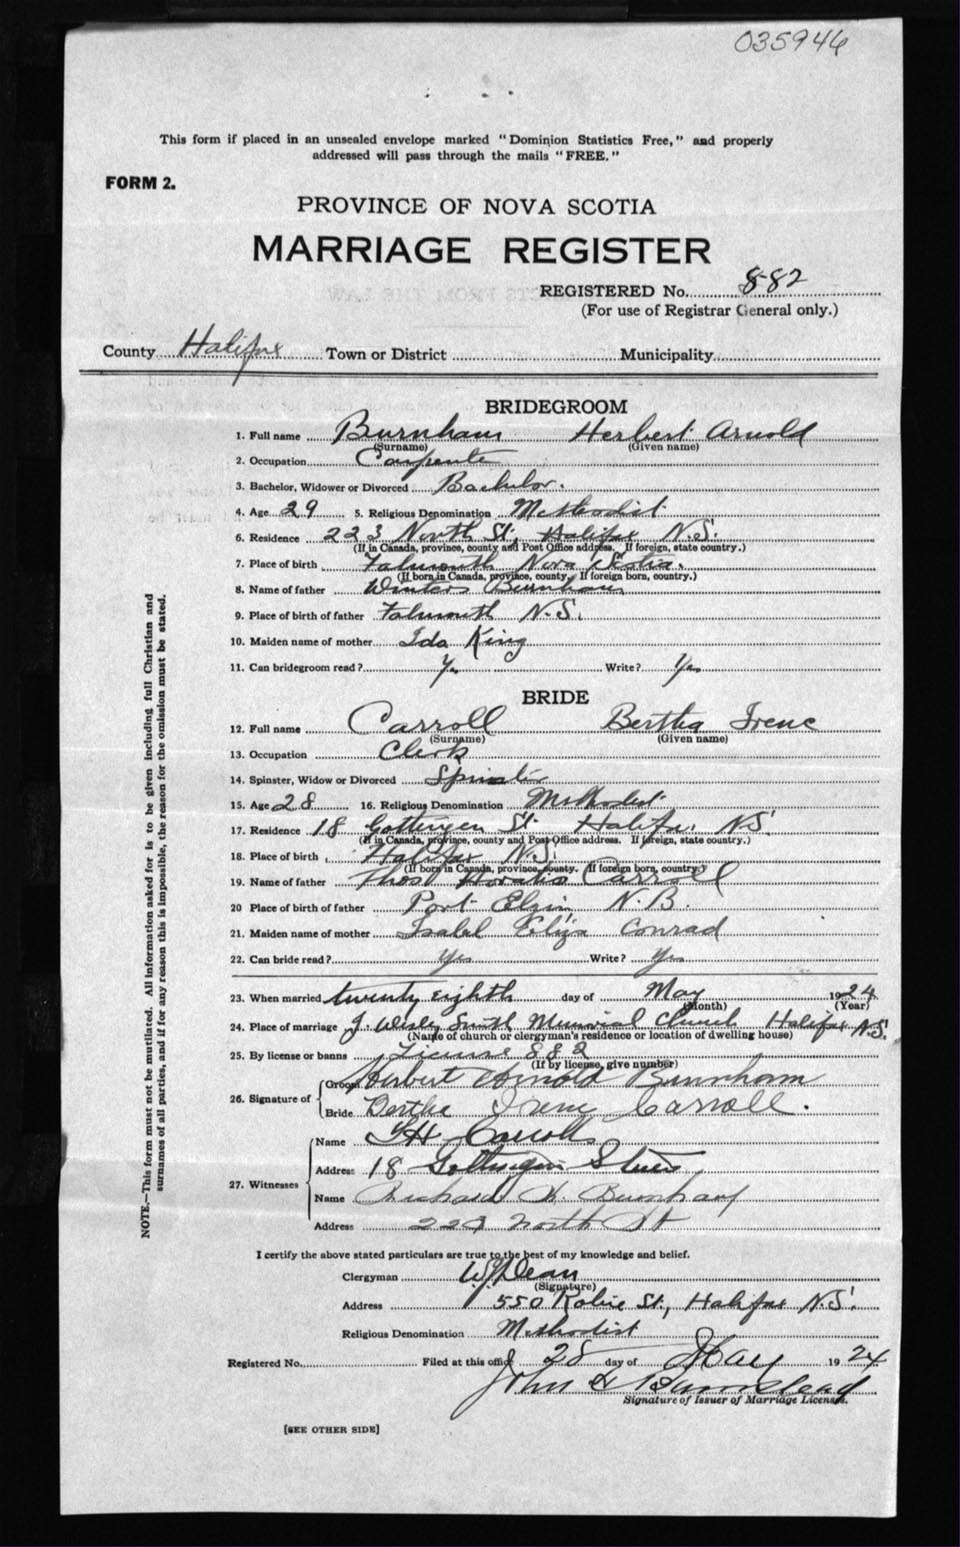 035946
This form if placed in an unsealed envelope marked "Dominion Statistics Free," and properly
addressed will pass through the mails "FREE."
FORM 2.
PROVINCE OF NOVA SCOTIA
MARRIAGE REGISTER
REGISTERED No. 882
(For use of Registrar General only.)
County Halifax Town or District Municipality
BRIDEGROOM
1. Full name Burnham Herbert Arnold
(Surname) (Given name)
2. Occupation Carpenter
3. Bachelor, Widower or Divorced Bachelor.
4. Age 29 5. Religious Denomination Methodist
6. Residence 223 North St, Halifax N.S.
(If in Canada, province, county and Post Office address. If foreign, state country.)
7. Place of birth Falmouth Nova Scotia.
(If born in Canada, province, county. If foreign born, country.)
8. Name of father Winters Burnham
9. Place of birth of father Falmouth N.S.
10. Maiden name of mother Ida King
11. Can bridegroom read? Yes Write? Yes
BRIDE
12. Full name Carroll Bertha Irene
(Surname) (Given name)
13. Occupation Clerk
14. Spinster, Widow or Divorced Spinster
15. Age 28 16. Religious Denomination Methodist
17. Residence 18 Gottingen St. Halifax N.S.
(If in Canada, province, county and Post Office address. If foreign, state country.)
18. Place of birth Halifax N.S.
(If born in Canada, province, county. If foreign born, country.)
19. Name of father Thos Horatio Carroll
20 Place of birth of father Port Elgin N.B.
21. Maiden name of mother Isabel Eliza Conrad
22. Can bride read? Yes Write? Yes
23. When married twenty eighth day of May 1924
(Month) (Year)
24. Place of marriage J. Wesley Smith Memorial Church Halifax N.S.
(Name of church or clergyman's residence or location of dwelling house)
25. By license or banns License 882
(If by license, give number)
26. Signature of Groom Herbert Arnold Burnham
Bride Bertha Irene Carroll.
27. Witnesses Name T H Carroll
Address 18 Gottingen Street
Name Richard H. Burnham
Address 223 North St
I certify the above stated particulars are true to the best of my knowledge and belief.
Clergyman W J Dean
(Signature)
Address 550 Robie St., Halifax N.S.
Religious Denomination Methodist
Registered No. Filed at this office 28 day of May 1924
John H Barnstead
Signature of Issuer of Marriage Licenses.
[SEE OTHER SIDE]
NOTE.—This form must not be mutilated. All information asked for is to be given including full Christian and
surnames of all parties, and if for any reason this is impossible, the reason for the omission must be stated.